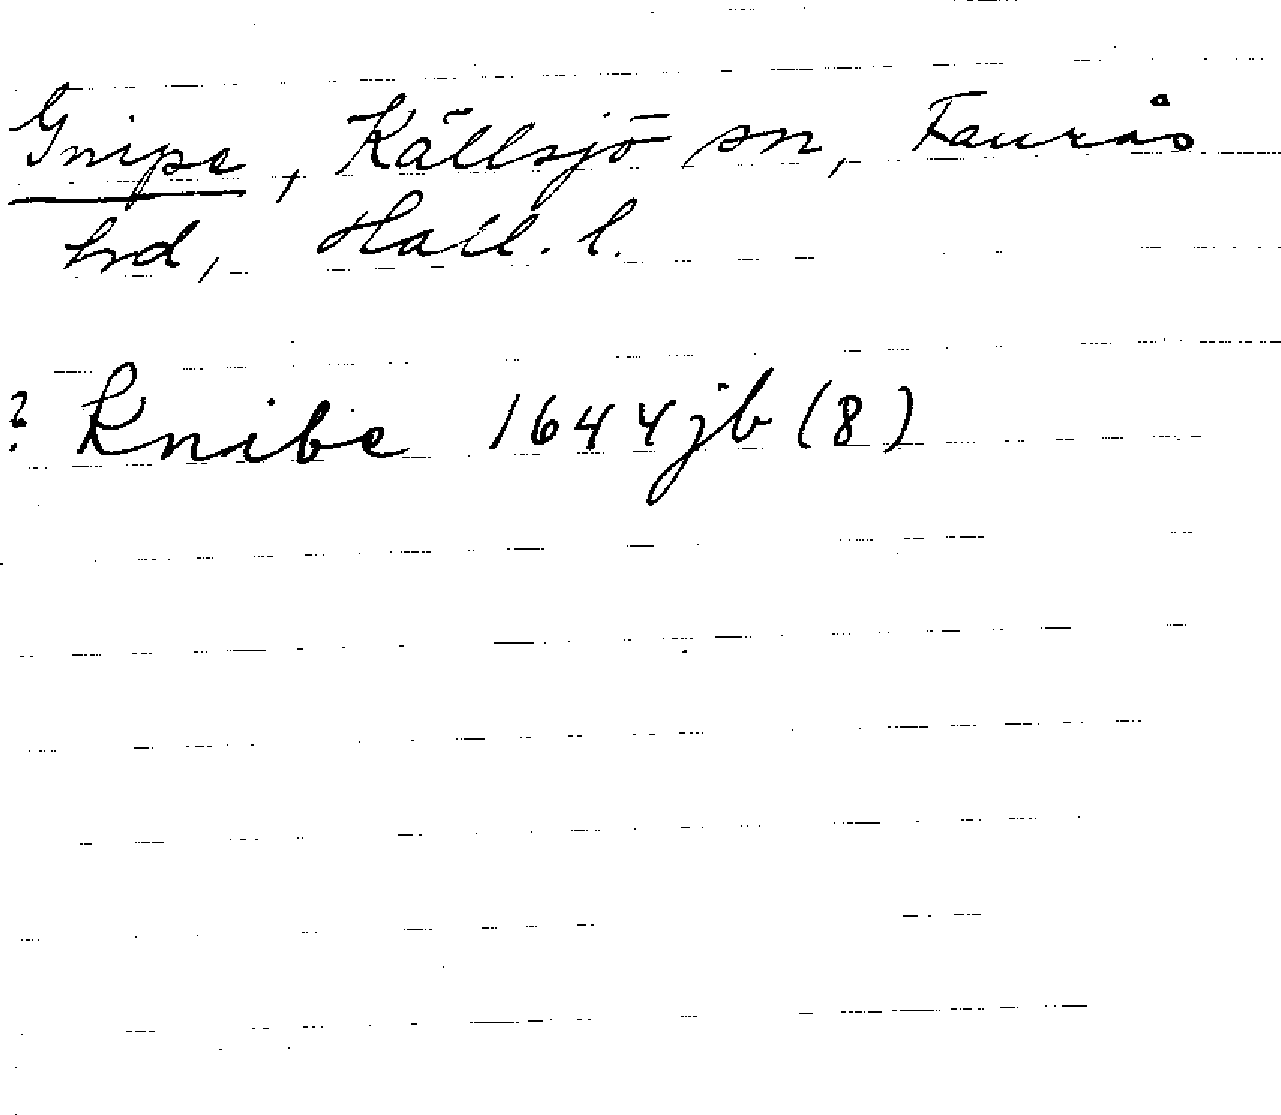 Gnipe, Källsjö sn, Faurås
hrd, Hall. l.
? Knibe 1644 jb (8)